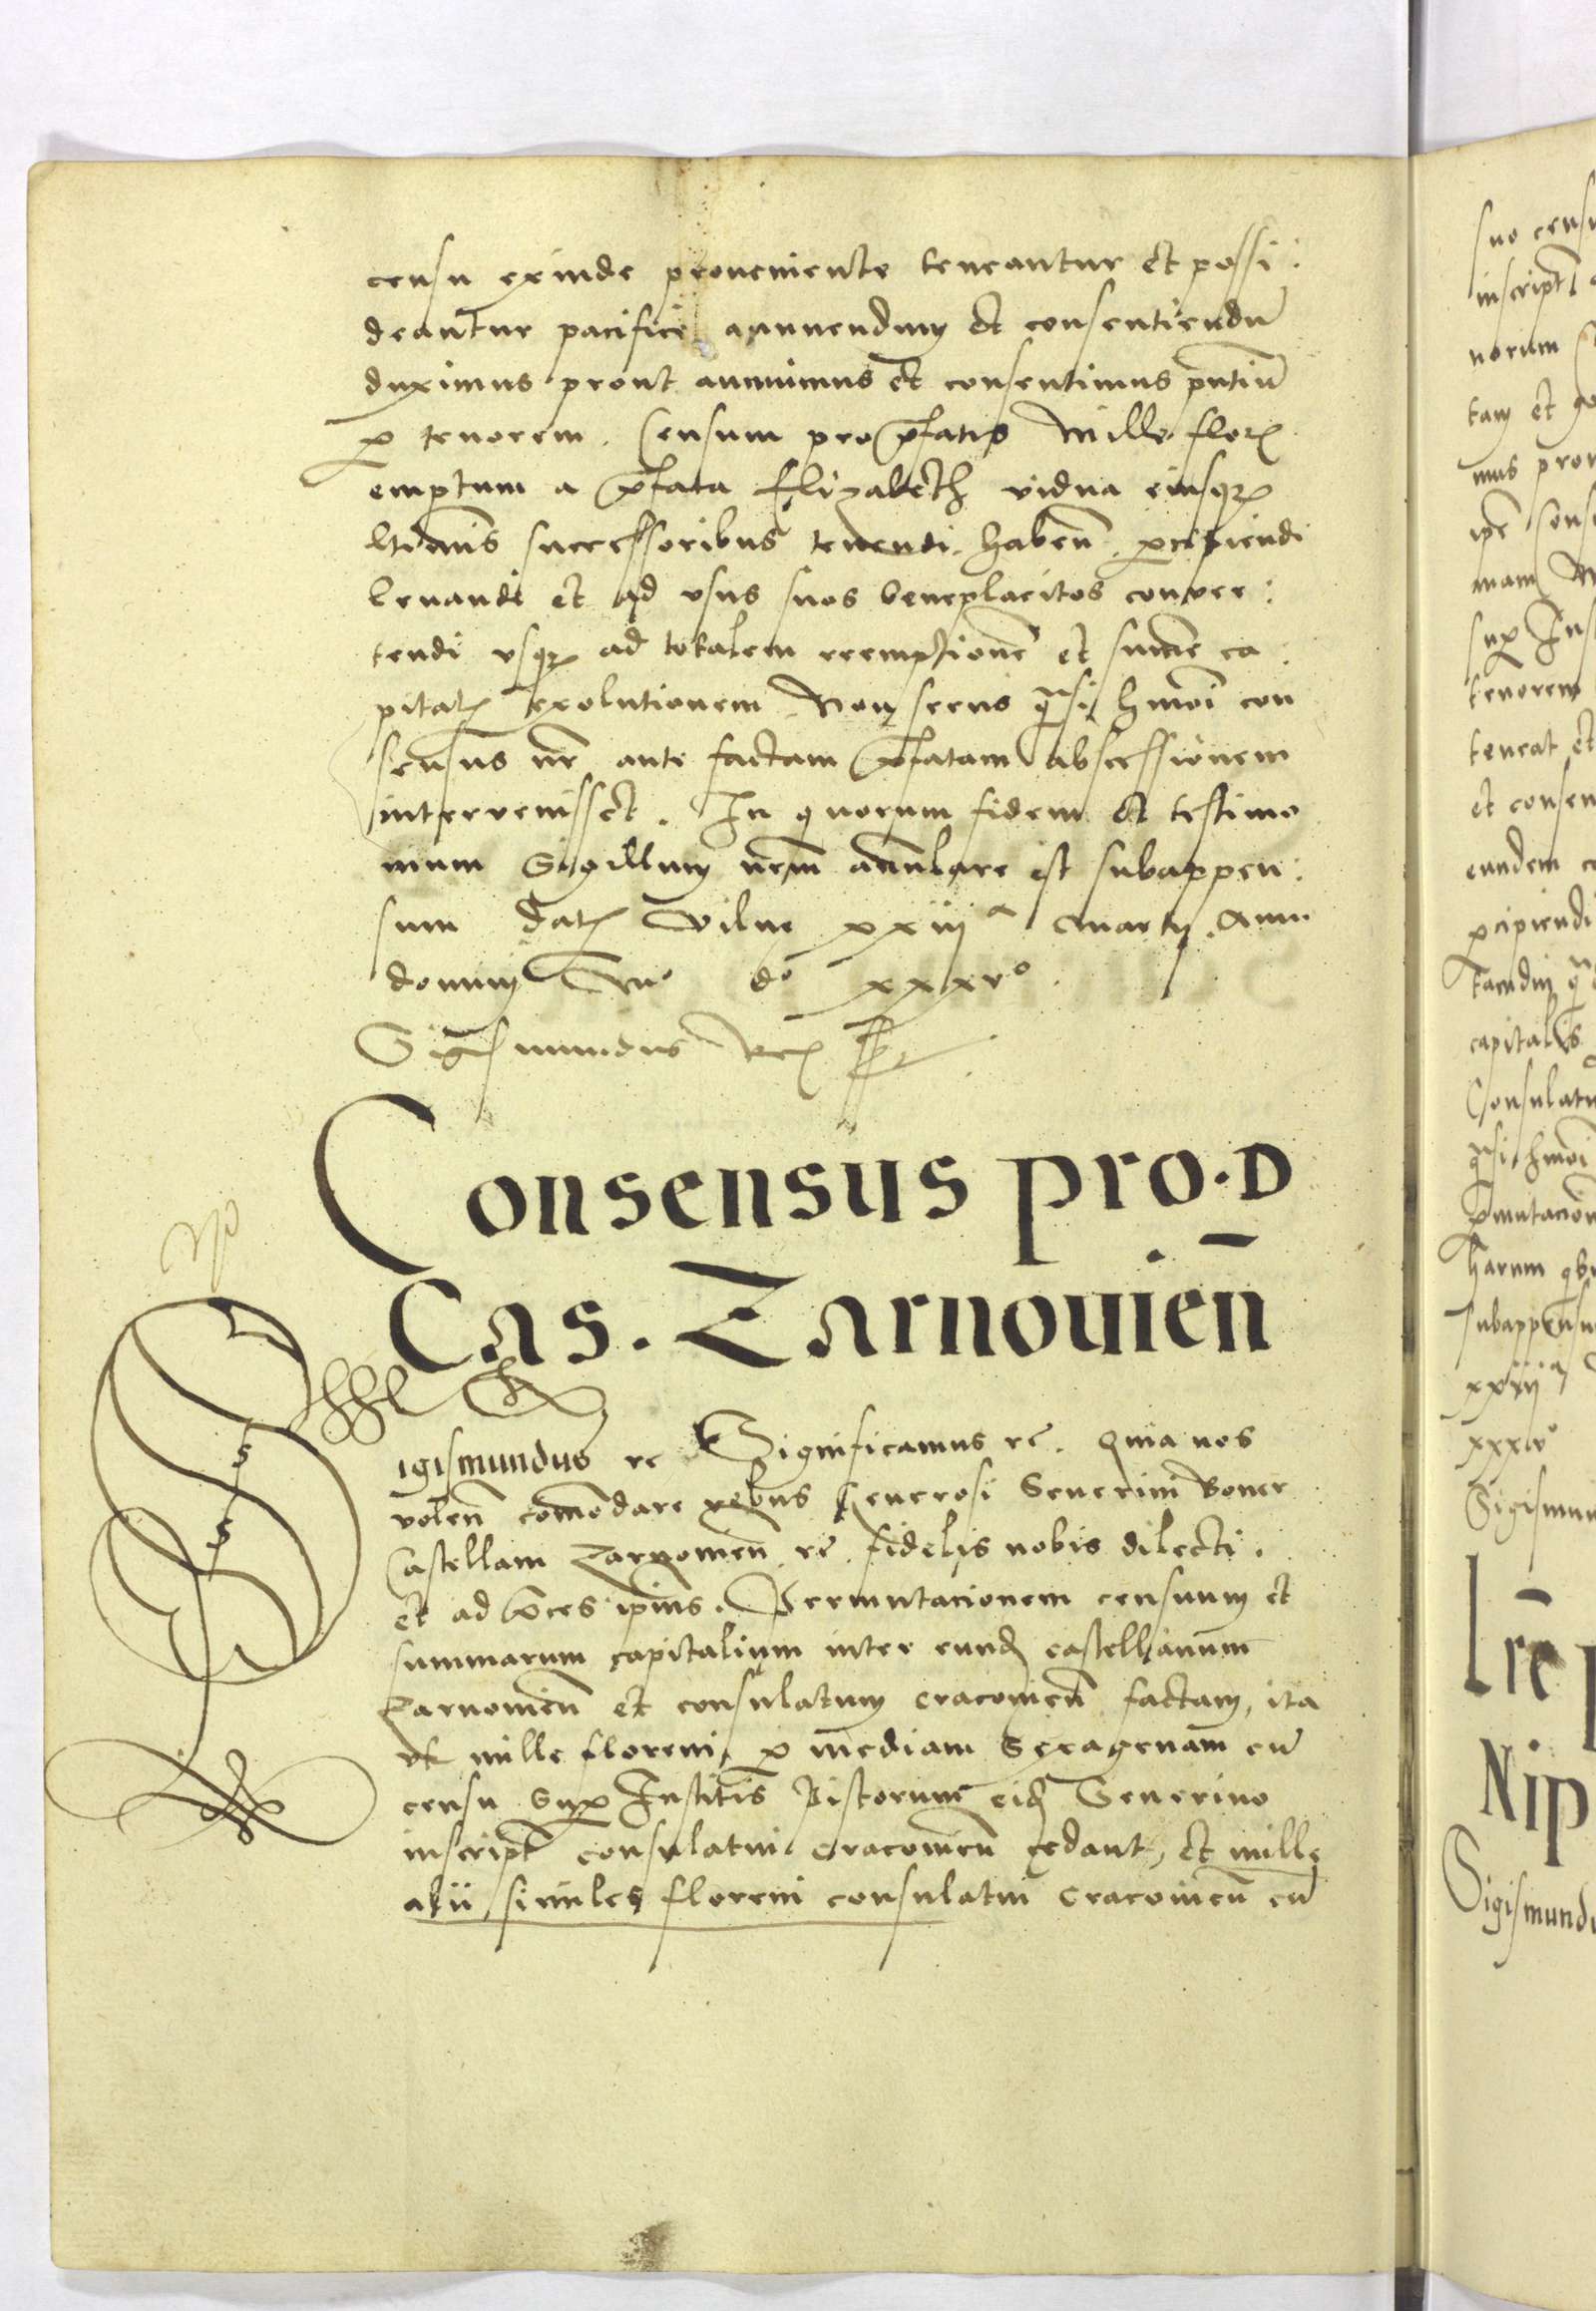 censu exinde proueniente teneantur et possi:
deantur pacifice annuendum et consentiendū
duximus prout annuimus et consentimus pn̄tiū
p tenorem. Censum pro p̄fatis Mille flor
emptum a p̄fata Elizabeth vidua eiusq
ltimis successoribus tenendi. habeñ. pcipiendi
leuandi et ad vsus suos beneplacitos conuer:
tendi vsq ad totalem reemptionē et sum̄e ca:
pital exolutionem Non secus q̄si hmōi con
sensus nr̄ ante factam p̄fatam abscessionem
interuenisset. In quorum fidem et testimo
nium Sigillum nr̄m annulare est subappen:
sum Dat Vilne xxiij a Martij. Anno
domini Mo do xxxvo.
Sigismundus Rex sst
Consensus pro. D
Cas. Zarnouieñ
Sigismundus rc Significamus rc̄. Quia nos
voleñ comōdare rebus Generosi Seuerini Boner
Castellani Zarnouieñ rc̄. fidelis nobis dilecti.
et ad p̄ces ip̄ius. Permutacionem censuum et
summarum capitalium inter eund castellanum
Zarnouieñ et consulatum cracouieñ factam, ita
vt mille floreni p mediam Sexagenam cū
censu Sup Institis Pistorum eid Seuerino
inscript consulatui cracouieñ cedant, et mille
alii similes floreni consulatui cracouieñ cū
suo censu
inscript
norum
tam et
mus prou
ip̄e
mam
sup Ins
tenorem
teneat et
et consen
eundem
pcipiendi
tamdiu
capitalis
Consulatu
q̄si hmōi
pmutacion
harum
subappensu
xxiij a
xxxvo
Sigismun
Lr̄e
Nip
Sigismundu